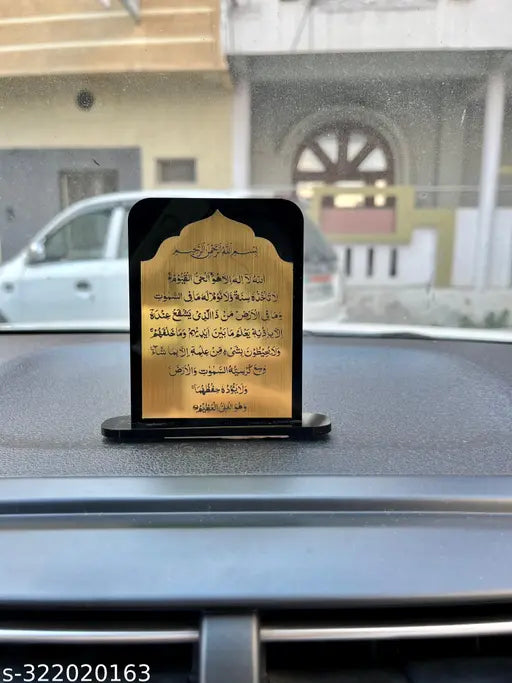 بِسْمِ اللهِ الرَّحْمٰنِ الرَّحِيْمِ
اَللهُ لَآ اِلٰهَ اِلَّا هُوَ اَلْحَيُّ الْقَيُّوْمُ
لَا تَاْخُذُهٗ سِنَةٌ وَّلَا نَوْمٌ لَهٗ مَا فِى السَّمٰوٰتِ
وَمَا فِى الْاَرْضِ مَنْ ذَا الَّذِىْ يَشْفَعُ عِنْدَهٗٓ
اِلَّا بِاِذْنِهٖ يَعْلَمُ مَا بَيْنَ اَيْدِيْهِمْ وَمَا خَلْفَهُمْ
وَلَا يُحِيْطُوْنَ بِشَىْءٍ مِّنْ عِلْمِهٖٓ اِلَّا بِمَا شَآءَ
وَسِعَ كُرْسِيُّهُ السَّمٰوٰتِ وَالْاَرْضَ
وَلَا يَئُوْدُهٗ حِفْظُهُمَا
وَهُوَ الْعَلِىُّ الْعَظِيْمُ
s-322020163